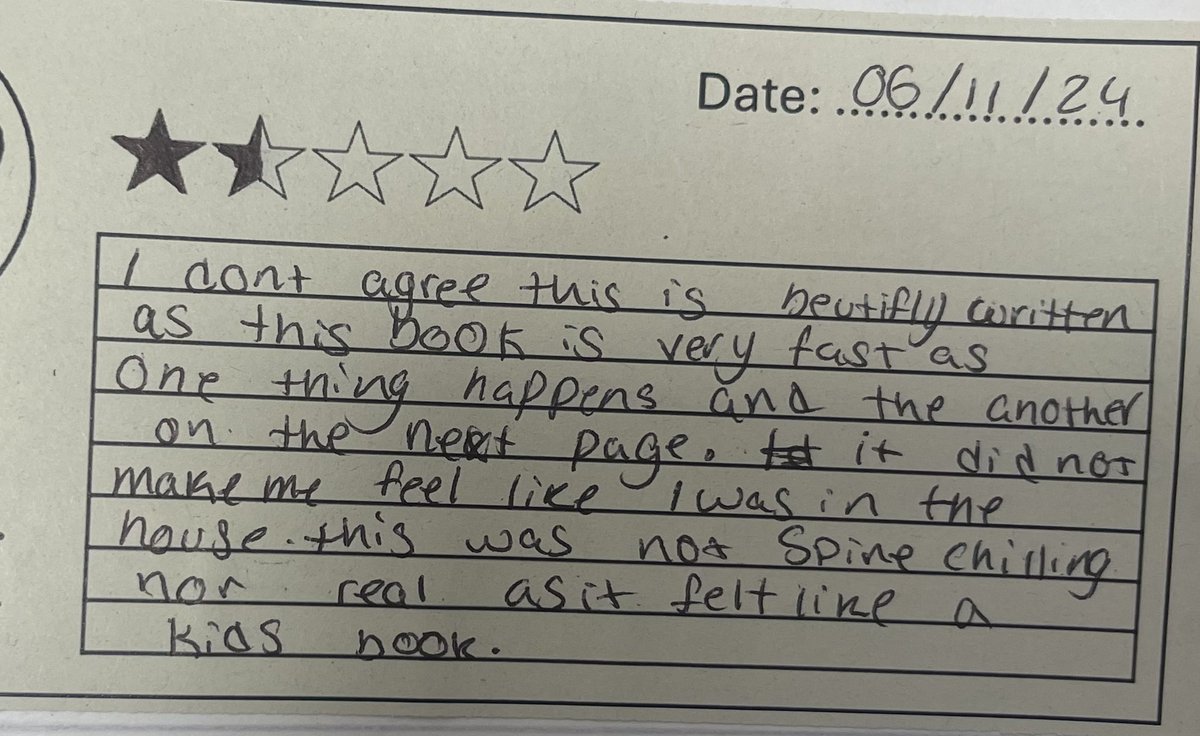 Date: 06/11/24
I dont agree this is beutifly written
as this book is very fast as
One thing happens and the another
on the next page. it did not
make me feel like I was in the
house. this was not Spine chilling
nor real as it felt like a
kids book.